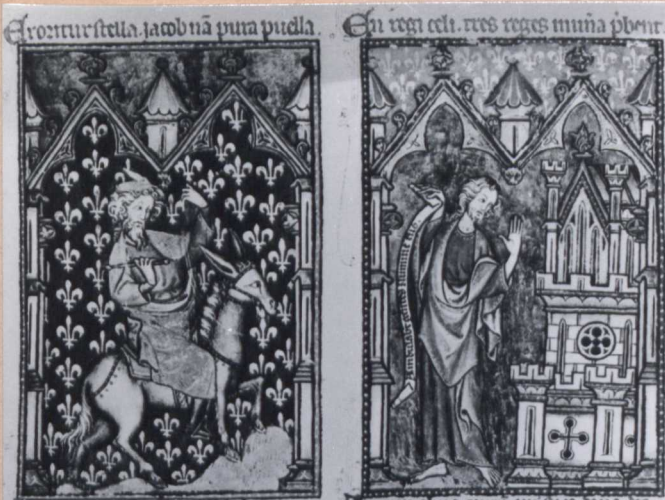 Exoritur stella. jacob nã pura puella.
En regi celi. tres reges muña p̃bent